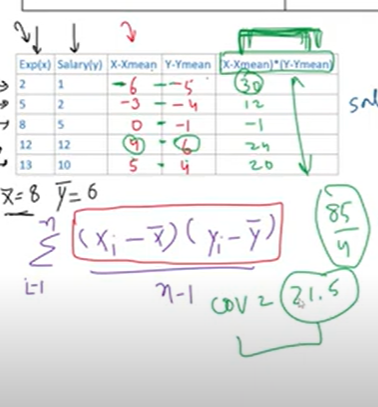 Exp(x) Salary(y) X-Xmean Y-Ymean (X-Xmean)*(Y-Ymean)
2 1 -6 -5 30
5 2 -3 -4 12
8 5 0 -1 -1
12 12 4 6 24
13 10 5 4 20
x̄=8 ȳ=6
85/4
n
Σ (xᵢ-x̄)(yᵢ-ȳ)
i-1 n-1
COV = 21.5